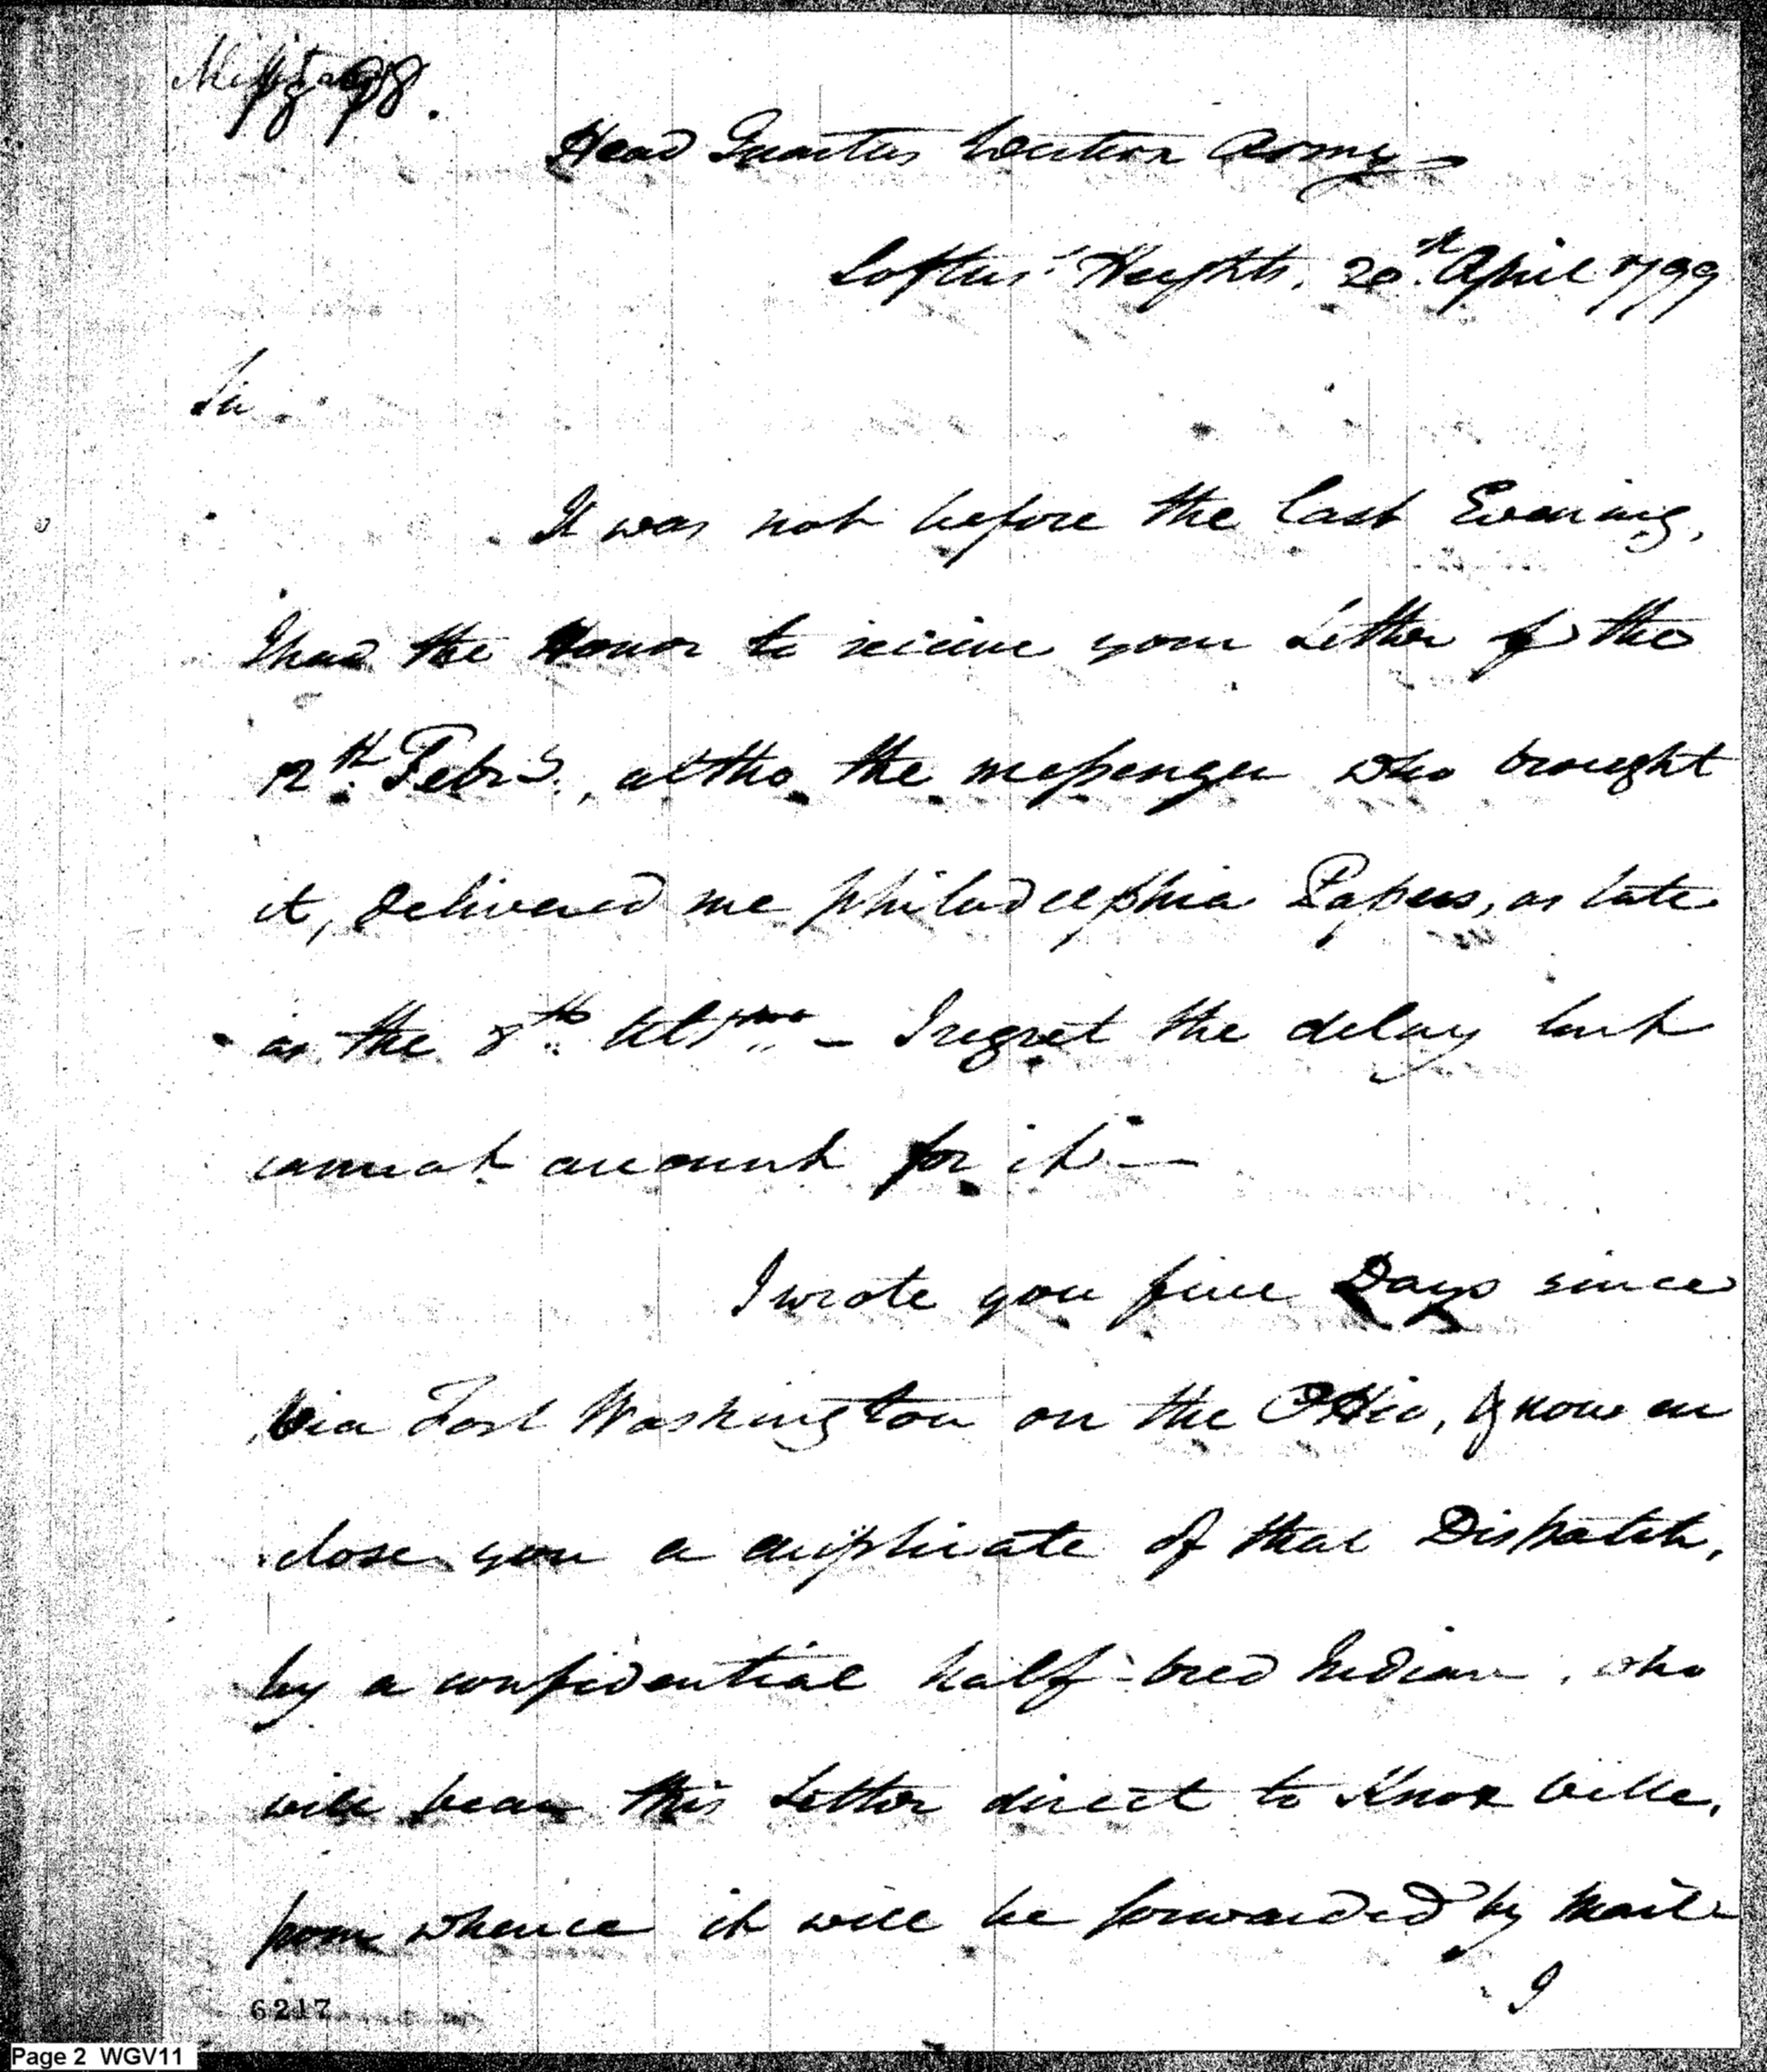 Head Quarters Western Army
Loftus' Heights, 20th April 1799
Sir
It was not before the last Evening,
I had the Honor to receive your Letter of the
12th Febry., altho the messenger who brought
it, delivered me philadelphia Papers, as late
as the 8th Ultimo — I regret the delay but
cannot account for it —
I wrote you five Days since
Via Fort Washington on the Ohio, & now en
close you a duplicate of that Dispatch,
by a confidential half-bred Indian, who
will bear this Letter direct to Knox ville,
from whence it will be forwarded by Mail
I
6217
Page 2 WGV11